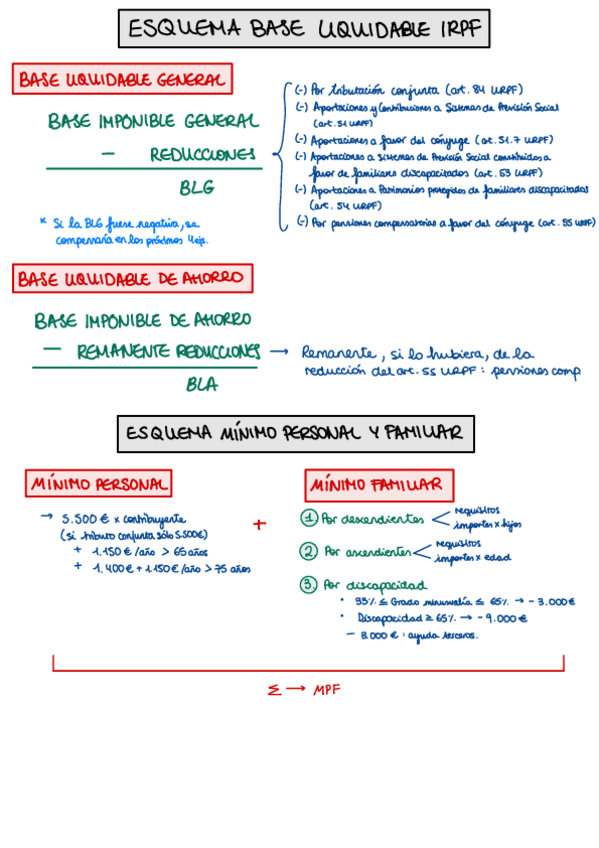 ESQUEMA BASE LIQUIDABLE IRPF
BASE LIQUIDABLE GENERAL
BASE IMPONIBLE GENERAL
– REDUCCIONES
BLG
* Si la BLG fuese negativa, se
compensaría en los próximos 4 ejs.
(-) Por tributación conjunta (art. 84 LIRPF)
(-) Aportaciones y Contribuciones a Sistemas de Previsión Social
(art. 51 LIRPF)
(-) Aportaciones a favor del cónyuge (art. 51.7 LIRPF)
(-) Aportaciones a Sistemas de Previsión Social constituidos a
favor de familiares discapacitados (art. 53 LIRPF)
(-) Aportaciones a Patrimonios protegidos de familiares discapacitados
(art. 54 LIRPF)
(-) Por pensiones compensatorias a favor del cónyuge (art. 55 LIRPF)
BASE LIQUIDABLE DE AHORRO
BASE IMPONIBLE DE AHORRO
– REMANENTE REDUCCIONES → Remanente, si lo hubiera, de la
reducción del art. 55 LIRPF: pensiones comp
BLA
ESQUEMA MÍNIMO PERSONAL Y FAMILIAR
MÍNIMO PERSONAL
→ 5.500 € x contribuyente
(si tributo conjunta sólo 5.500€)
+ 1.150 €/año > 65 años
+ 1.400 € + 1.150 €/año > 75 años
+
MÍNIMO FAMILIAR
1 Por descendientes < requisitos
importes x hijos
2 Por ascendientes < requisitos
importes x edad
3. Por discapacidad
· 33% ≤ Grado minusvalía ≤ 65% → - 3.000 €
· Discapacidad ≥ 65% → - 9.000 €
– 3.000 € : ayuda terceros.
Σ → MPF